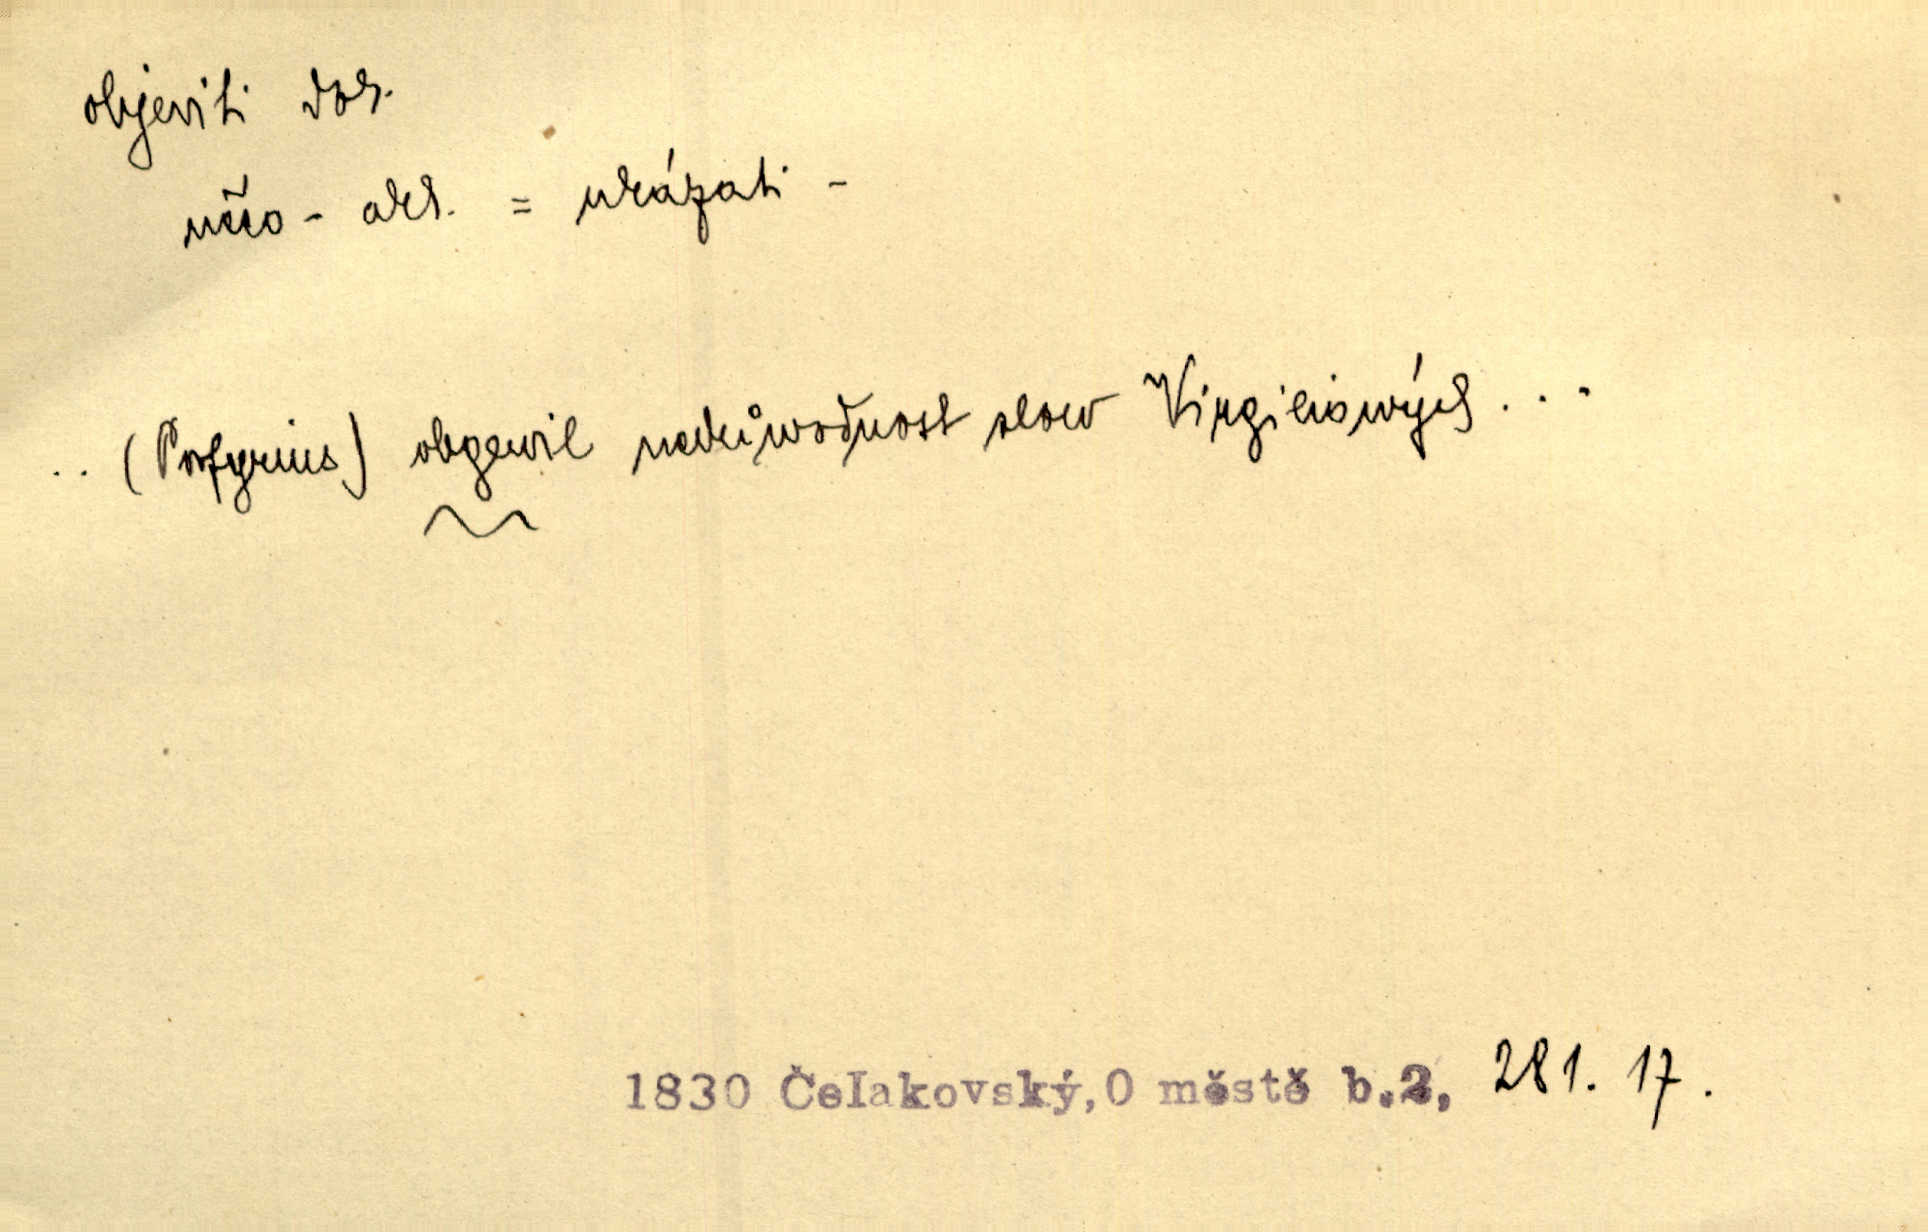 objeviti dok.
něco - akk. = ukázati -
.. (Porfyrius) obgewil nedůwodnost slow Virgiliowých ...
1830 Čelakovský, O městě b.2, 281. 17.